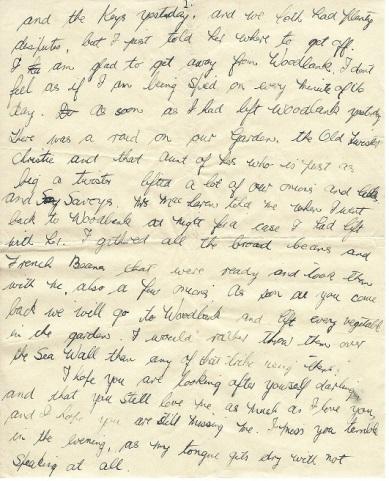 2.
and the Keys yesterday. and we both had plenty
disputes, but I just told her where to get off.
I am glad to get away from Woodbank. I don't
feel as if I am being spied on every minute of the
day. As soon as I had left Woodbank yesterday
there was a raid on our Garden, the Old Twister
Christie and that aunt of his who is just as
big a twister lifted a lot of our onions and
and Savoys. Mrs Maclaren told me when I went
back to Woodbank at night for a case I had left
with her. I gathered all the broad beans and
French Beans that were ready and took them
with me, also a few onions. As soon as you come
back we will go to Woodbank and lift every vegetable
in the garden, I would rather throw them over
the Sea Wall than any of that using them.
I hope you are looking after yourself darling
and that you still love me, as much as I love you,
and I hope you are still missing me. I miss you terrible
in the evening, as my tongue gets dry with not
speaking at all.